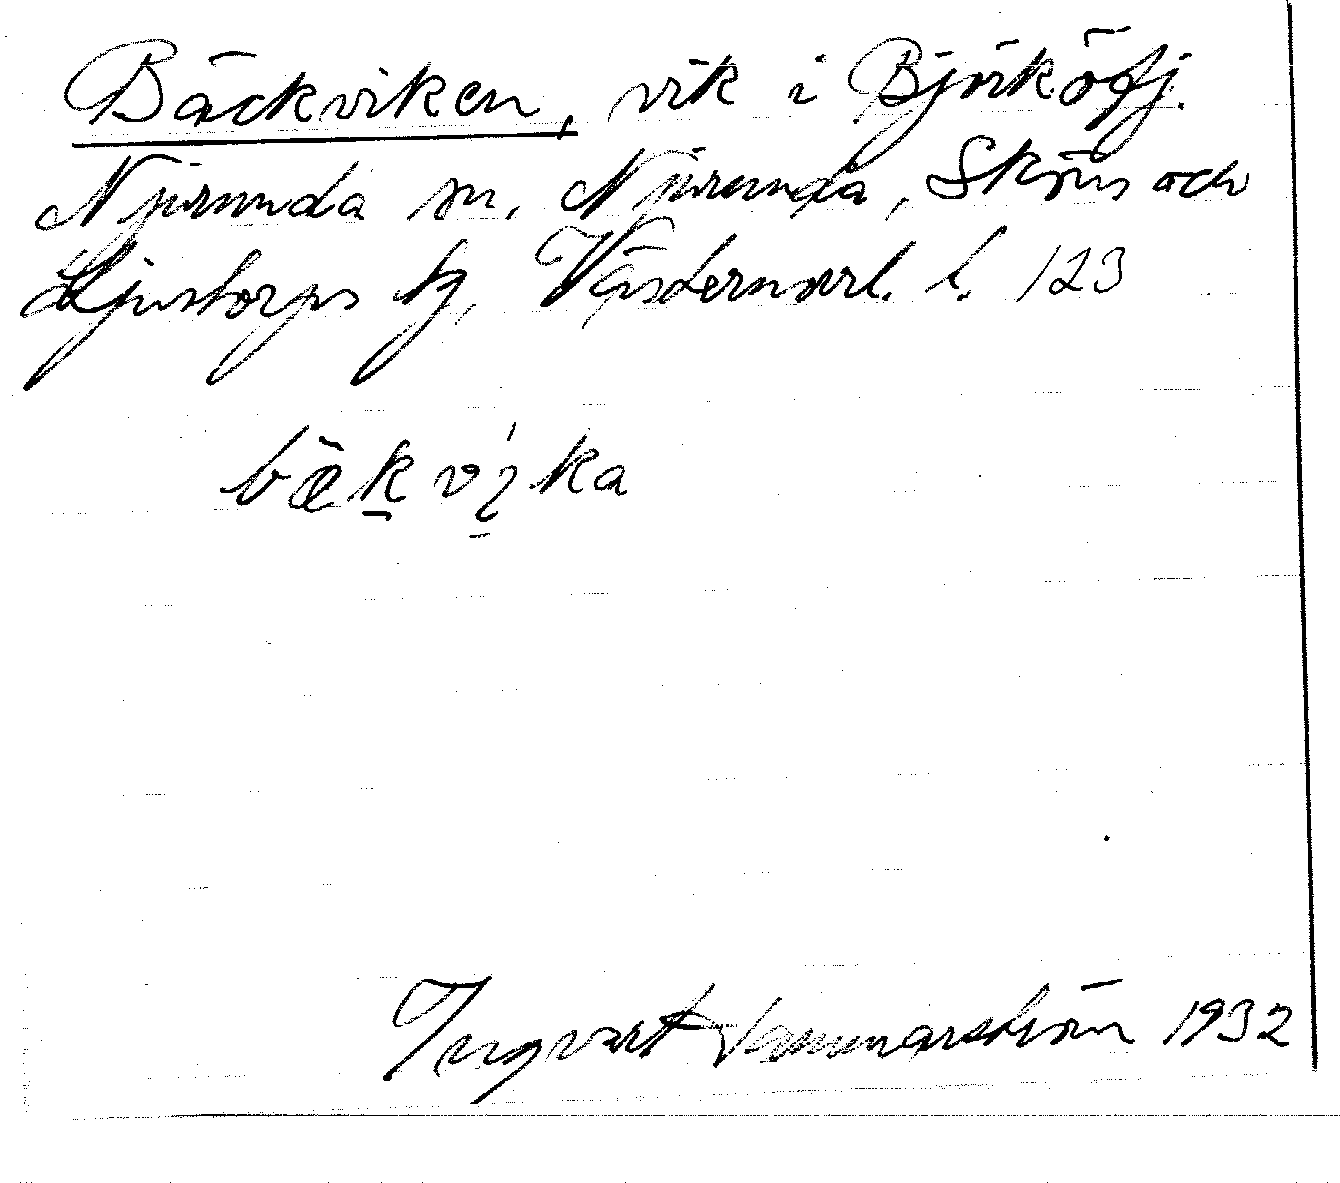 Bäckviken, vik i Björköfj.
Njurunda sn, Njurunda, Sköns och
Ljustorps tg, Västernorrl. l. 123
bækvịka
Ingvar Hammarström 1932